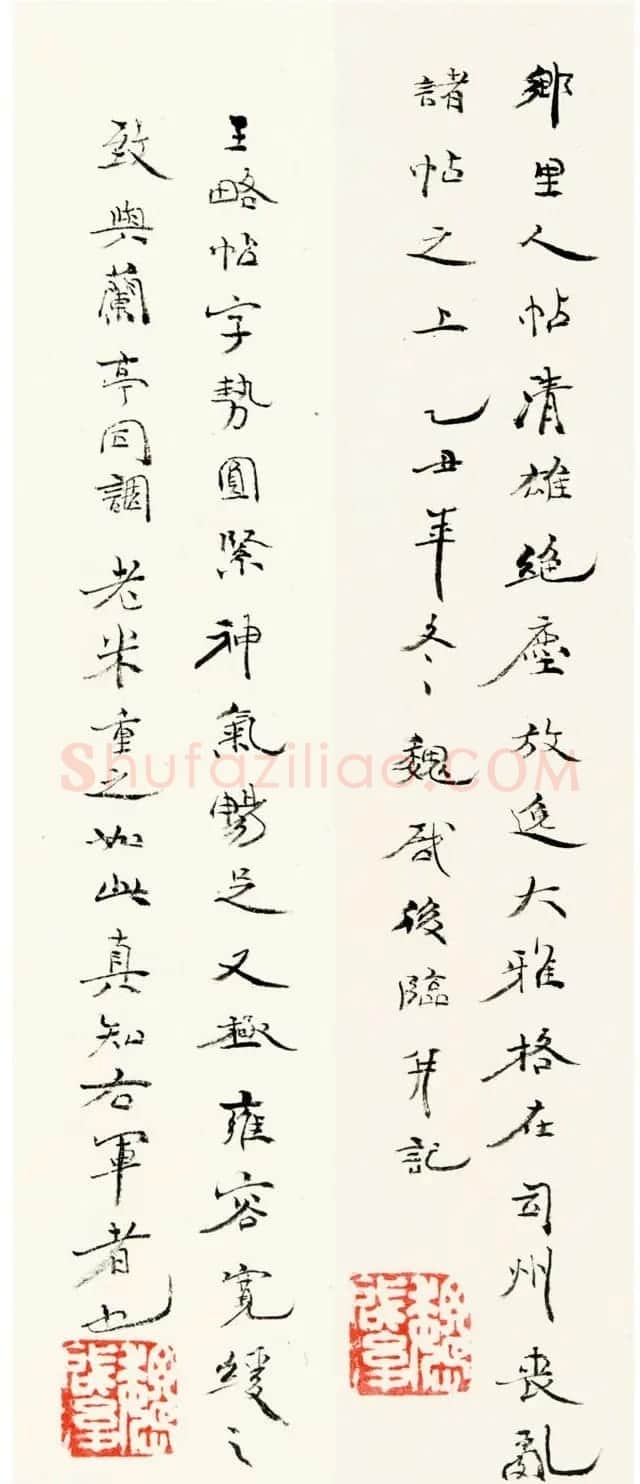 鄉里人帖清雄絕塵放逸大雅格在司州喪亂
諸帖之上乙丑年冬魏啟後臨并記
王略帖字勢圓緊神氣暢足又極雍容寬緩之
致與蘭亭同調老米重之如此真知右軍者也
Shufaziliao.COM